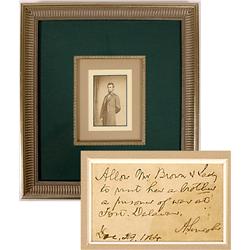 Allow Mr Brown & Lady
to visit her a brother
a prisoner of war at
Fort Delaware,
A. Lincoln
Dec. 29, 1864